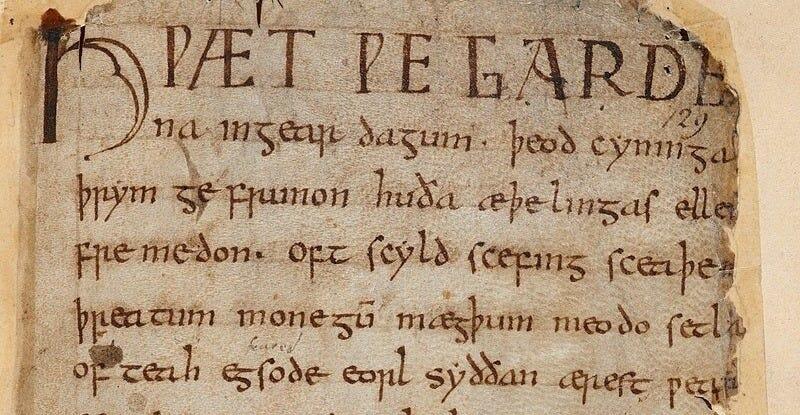 HǷÆT ǷE GARDE
na in gear dagum. þeod cyninga
þrym ge frunon huða æþelingas elle
fre medon. Oft scyld scefing sceaþe
þreatum monegū mægþum meodo setla
of teah egsode eorl syððan ærest ƿear
129